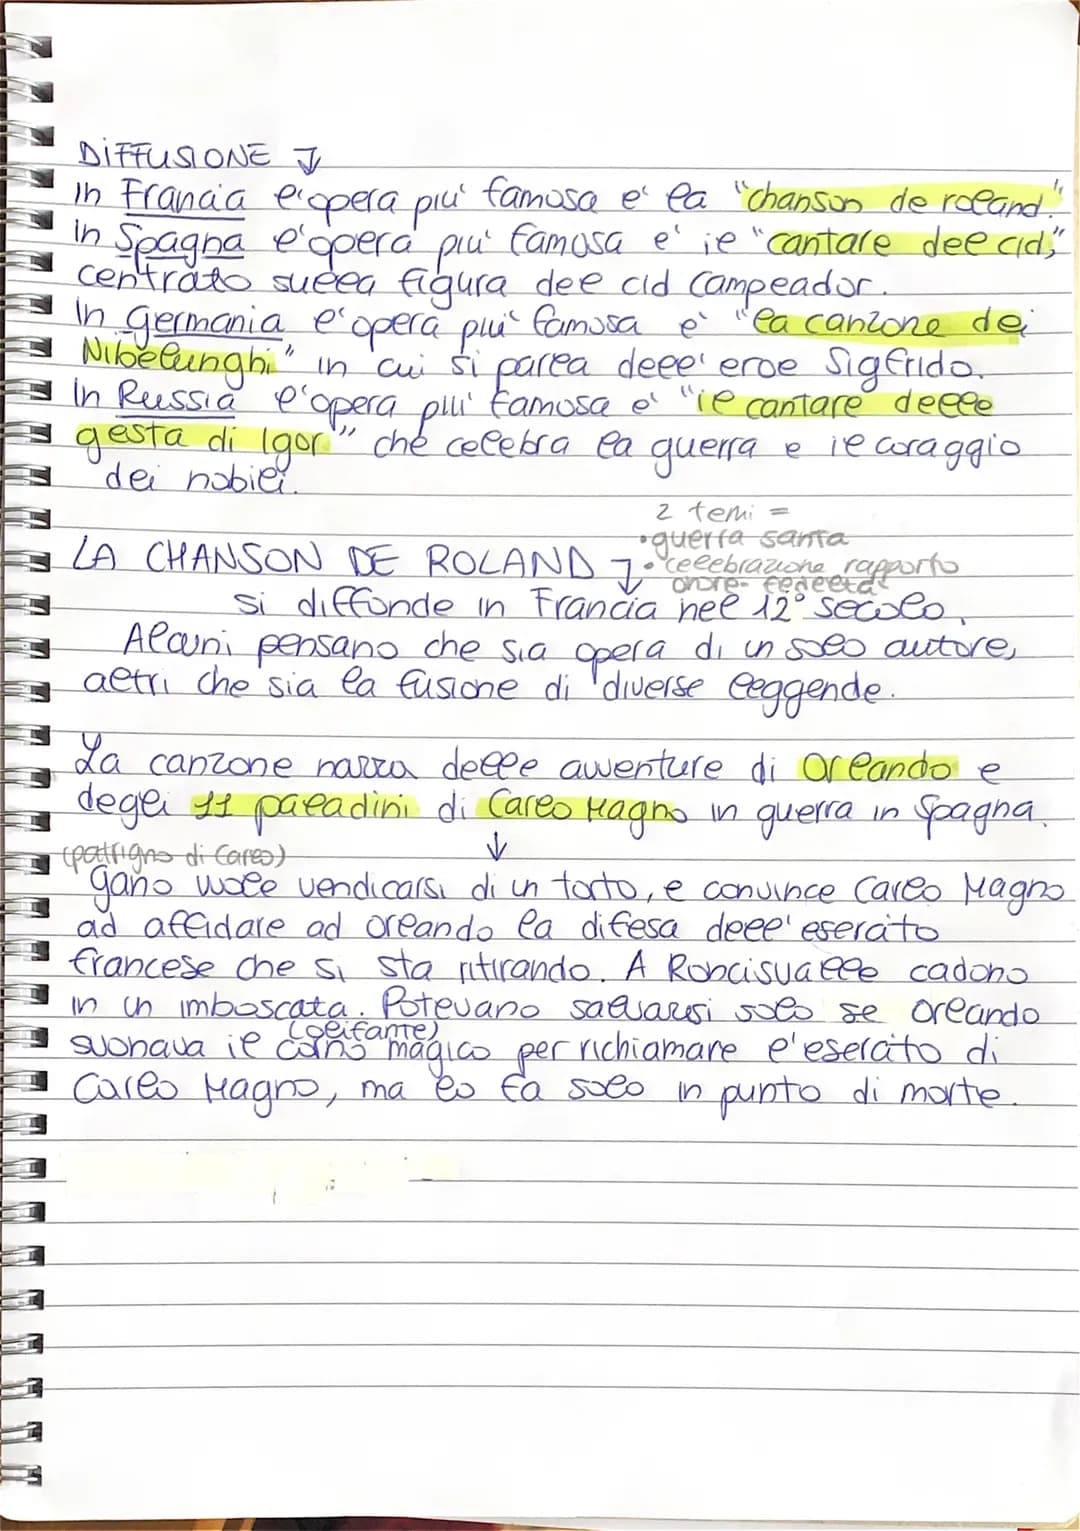 DIFFUSIONE ↓
In Francia l'opera piu' famosa e' la "chanson de roland".
in Spagna l'opera piu' famosa e' il "cantare del cid",
centrato sulla figura del cid campeador.
In Germania l'opera piu' famosa e' "la canzone dei
Nibelunghi" in cui si parla dell'eroe Sigfrido.
In Russia l'opera piu' famosa e' "il cantare delle
gesta di Igor" che celebra la guerra e il coraggio
dei nobili.
2 temi =
•guerra santa
LA CHANSON DE ROLAND ↓ •celebrazione rapporto
onore-fedeltà
si diffonde in Francia nel 12° secolo.
Alcuni pensano che sia opera di un solo autore,
altri che sia la fusione di diverse leggende.
La canzone narra delle avventure di Orlando e
degli 11 paladini di Carlo Magno in guerra in Spagna.
(patrigno di Carlo) ↓
Gano vuole vendicarsi di un torto, e convince Carlo Magno
ad affidare ad orlando la difesa dell'esercito
francese che si sta ritirando. A Roncisvalle cadono
in un imboscata. Potevano salvarsi solo se orlando
(olifante)
suonava il corno magico per richiamare l'esercito di
Carlo Magno, ma lo fa solo in punto di morte.